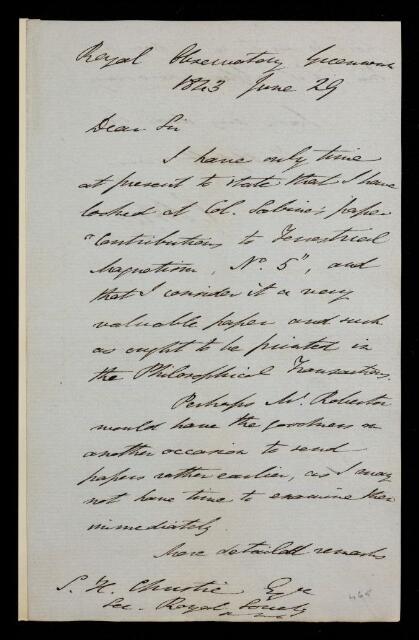 Royal Observatory Greenwich
1843 June 29
Dear Sir
I have only time
at present to state that I have
looked at Col. Sabine's paper
"Contributions to Terrestrial
Magnetism, No. 5", and
that I consider it a very
valuable paper and such
as ought to be printed in
the Philosophical Transactions.
Perhaps Mr. Roberton
would have the goodness on
another occasion to send
papers rather earlier, as I may
not have time to examine them
immediately.
More detailed remarks
S. H. Christie Esqre
Sec. Royal Society